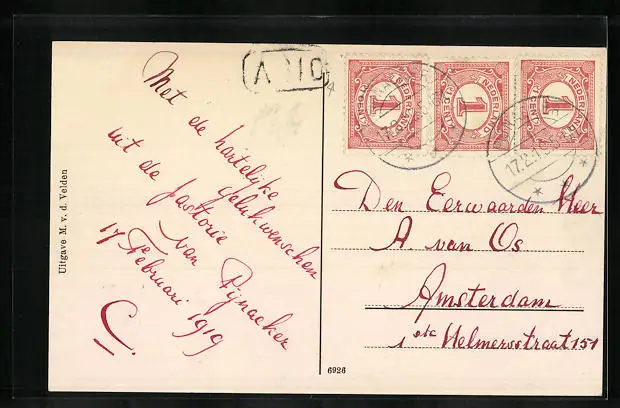 Met de hartelijke
gelukwenschen
uit de pastorie
van Pijnacker
17 Februari 1919
C.
Uitgave M. v. d. Velden
1 CENT NEDERLAND
1 CENT NEDERLAND
1 CENT NEDERLAND
17.2.1
Den Eerwaarden Heer
A. van Os
Amsterdam
1ste Helmersstraat 151
6926